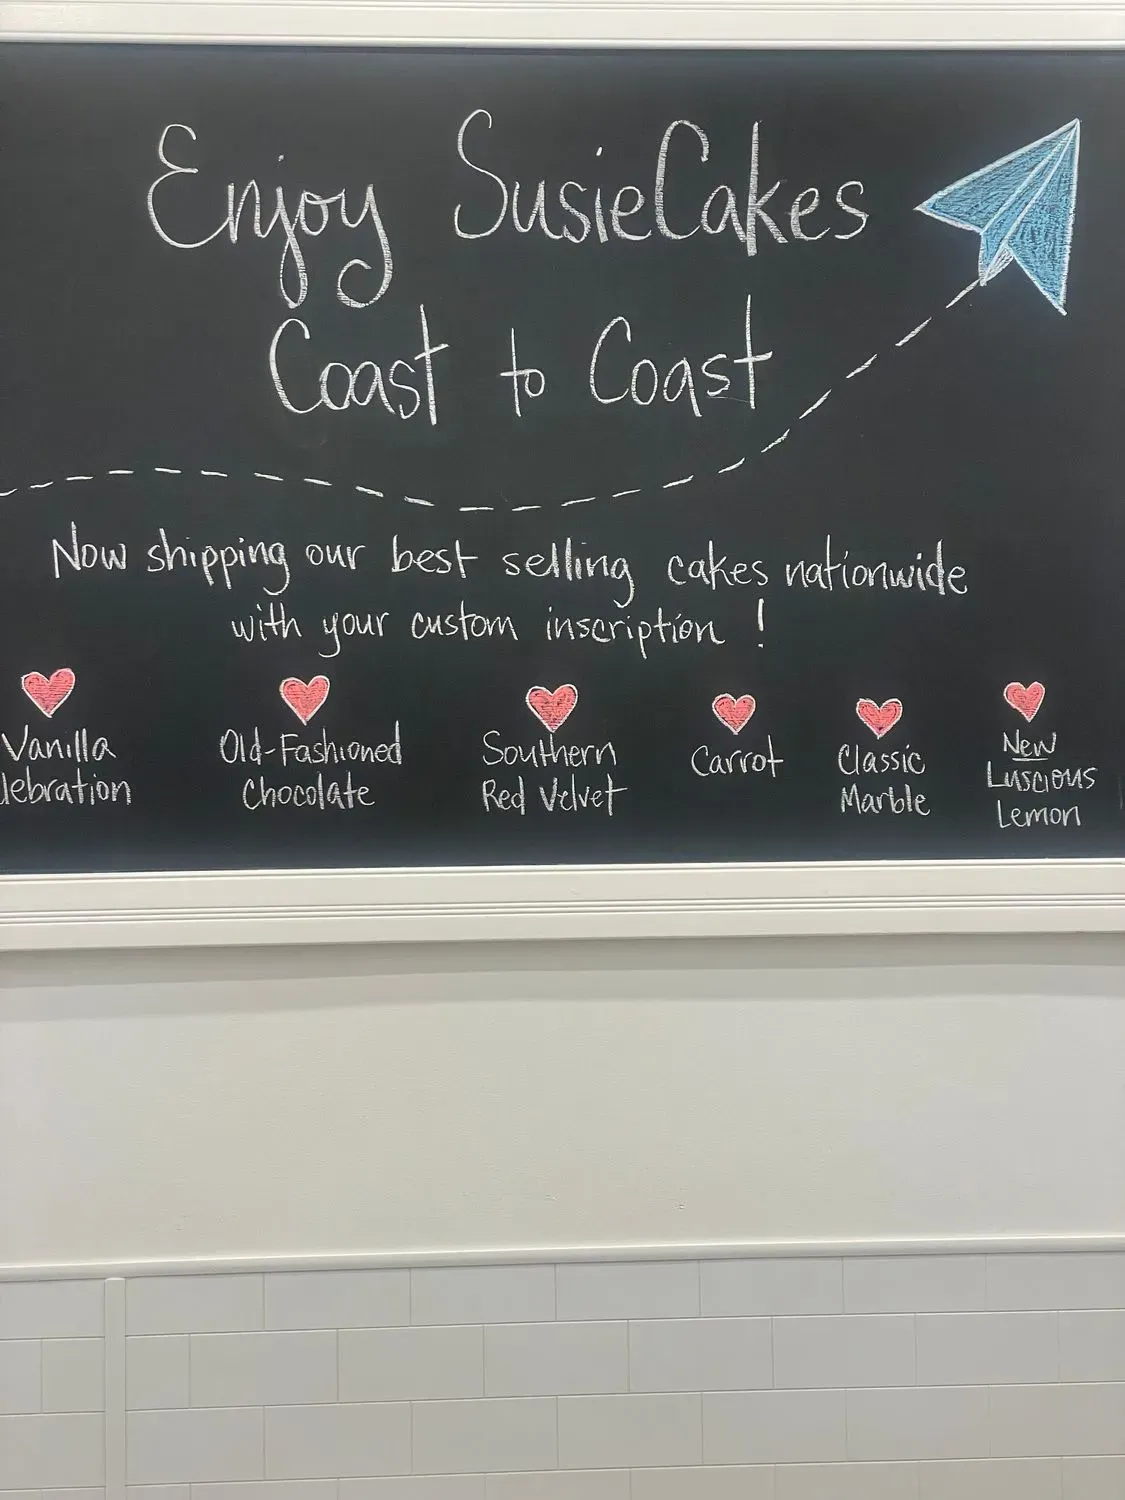 Enjoy SusieCakes
Coast to Coast
Now shipping our best selling cakes nationwide
with your custom inscription !
Vanilla
lebration
Old-Fashioned
Chocolate
Southern
Red Velvet
Carrot
Classic
Marble
New
Luscious
Lemon